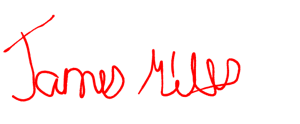 James Miles